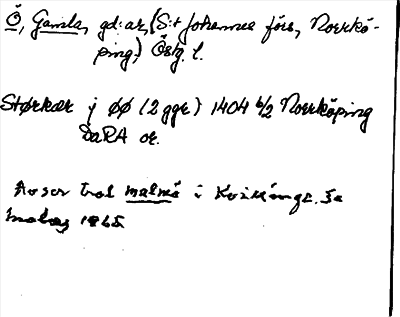 Ö, Gamla, gd:ar, (S:t Johannes förs, Norrkö-
ping,) Östg. l.
Størkær j ØØ (2 ggr) 1404 6/2 Norrköping
DaRA or.
Avser trol malmö i Kvillinge. Se
1965